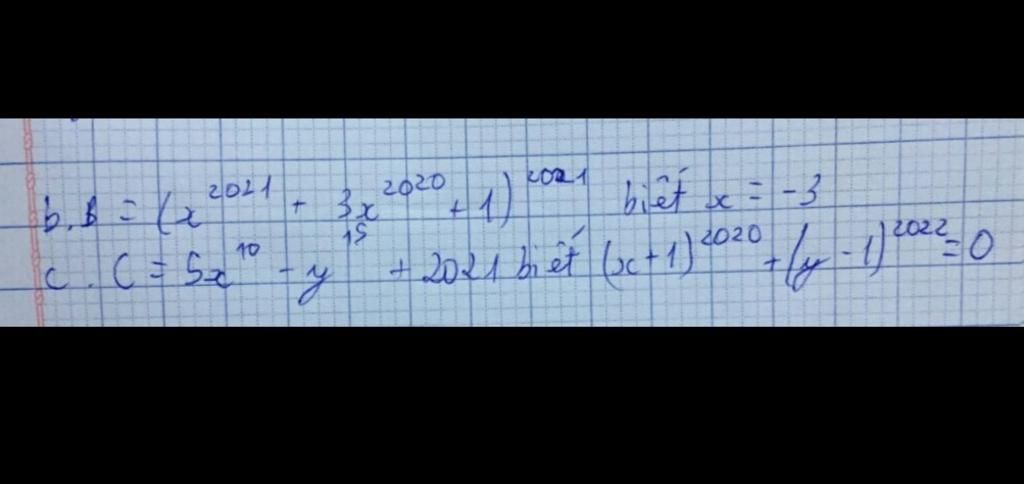 b. B = (x^2021 + 3x^2020 + 1)^2021 biết x = -3
c. C = 5x^10 - y^15 + 2021 biết (x+1)^2020 + (y-1)^2022 = 0